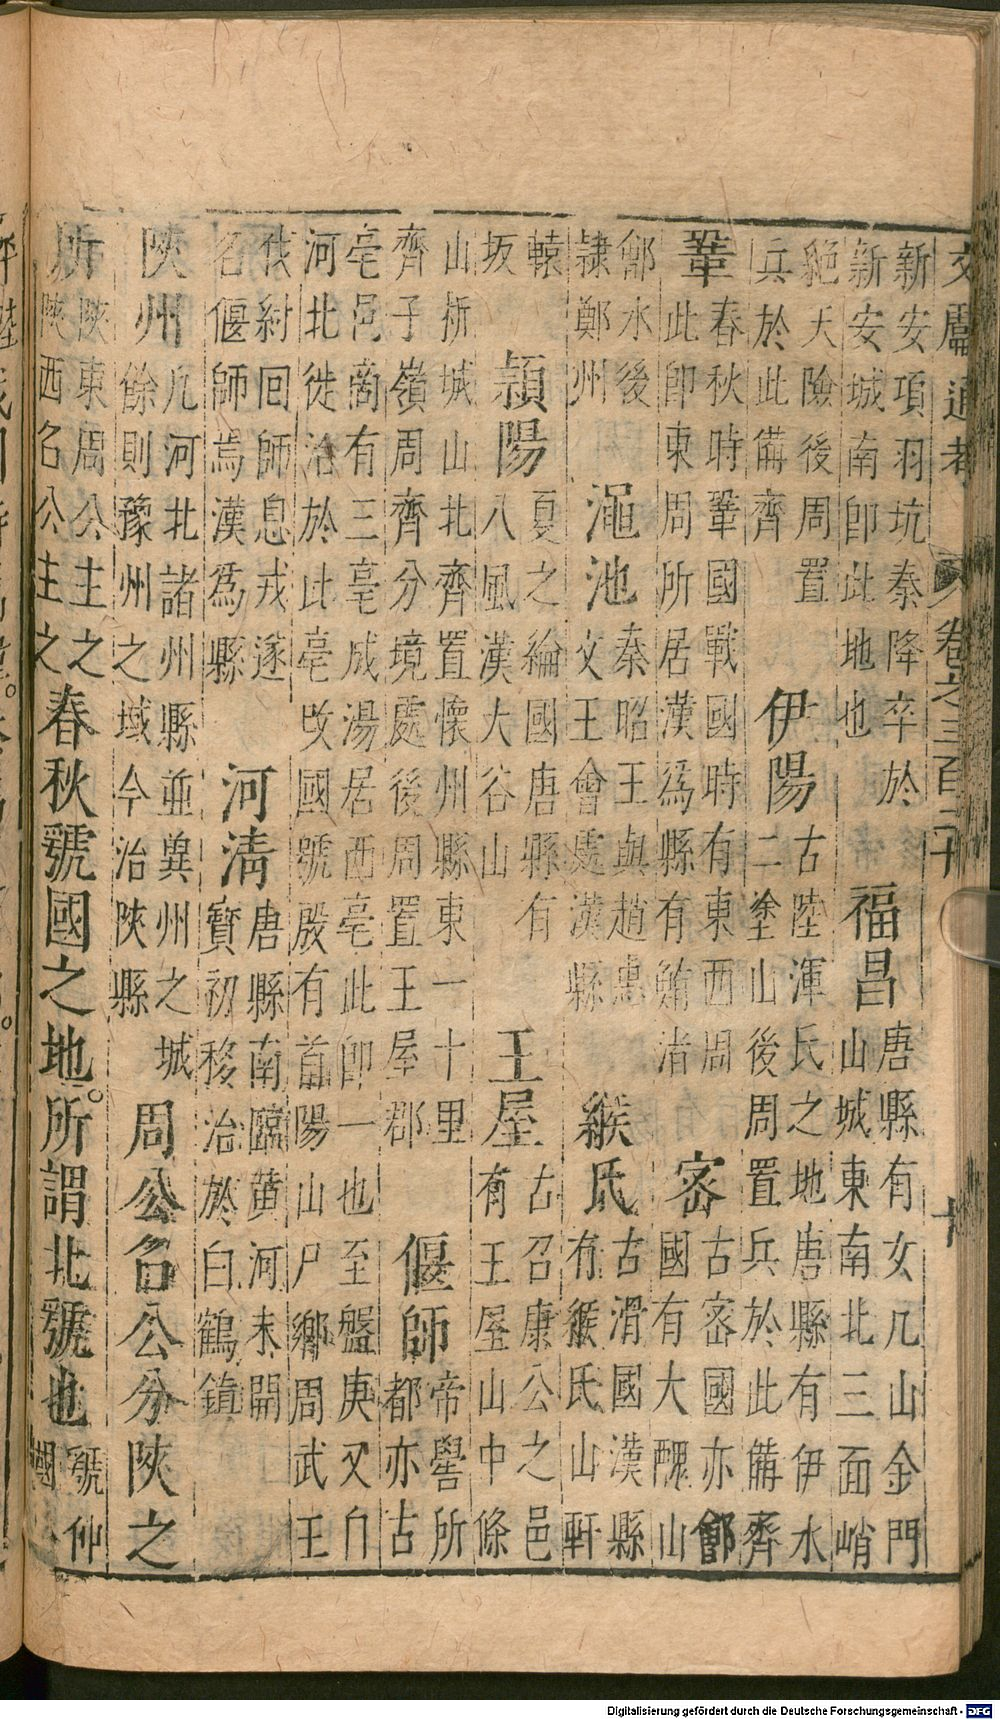 文獻通考 卷之三百二十 十
新安項羽坑秦降卒於
新安城南即此地也
福昌
唐縣有女几山金門
山城東南北三面峭
絕天險後周置
兵於此備齊
伊陽
古陸渾氏之地唐縣有伊水
二塗山後周置兵於此備齊
鞏
春秋時鞏國戰國時有東西周
此即東周所居漢為縣有鮪渚
密
古密國亦鄶
國有大騩山
鄶水後
隷鄭州
澠池
秦昭王與趙惠
文王會處漢縣
緱氏
古滑國漢縣
有緱氏山軒
轅
坂
潁陽
夏之綸國唐縣有
八風漢大谷山
王屋
古召康公之邑
有王屋山中條
山析城山北齊置懷州縣東一十里
齊子嶺周齊分境處後周置王屋郡
偃師
帝嚳所
都亦古
亳邑商有三亳成湯居西亳此即一也至盤庚又自
河北徙治於此亳改國號殷有首陽山尸鄉周武王
伐紂回師息戎遂
名偃師焉漢為縣
河清
唐縣南臨黄河末開
寶初移治於白鶴鎮
陝州
凡河北諸州縣並兾州之城
餘則豫州之域今治陝縣
周公召公分陝之
所
陜東周公主之
陜西召公主之
春秋虢國之地。所謂北虢也
虢仲
國
Digitalisierung gefördert durch die Deutsche Forschungsgemeinschaft - DFG